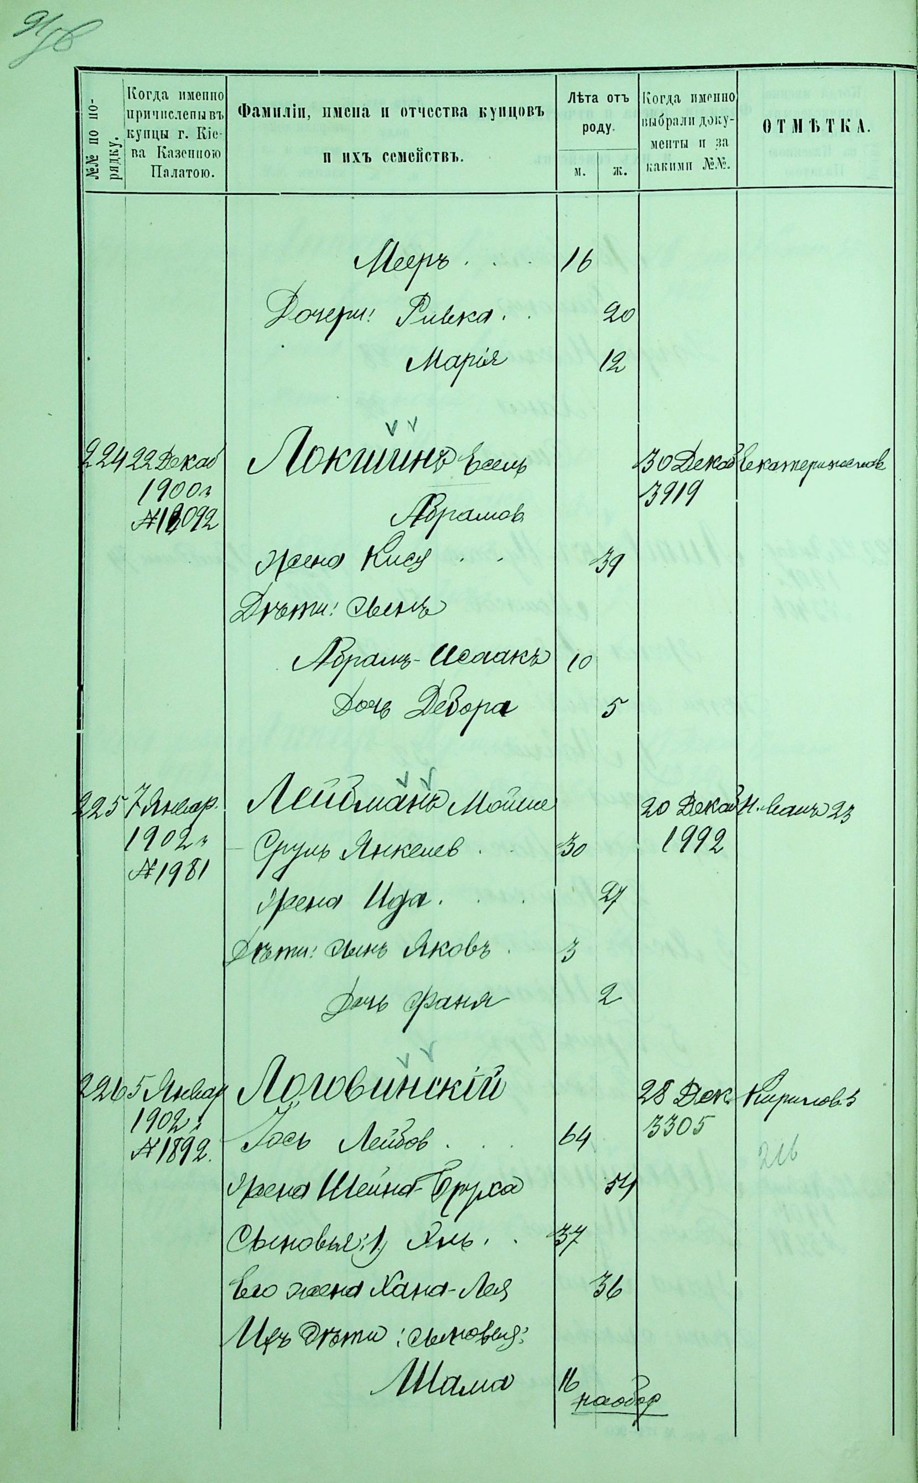 №№ по порядку.
Когда именно причислены въ купцы г. Кіева Казенною Палатою.
Фамиліи, имена и отчества купцовъ и ихъ семействъ.
Лѣта отъ роду.
м. ж.
Когда именно выбрали документы и за какими №№.
ОТМѢТКА.
Мееръ . . . 16
Дочери: Ривка . . 20
Марія 12
224 22 Декаб Локшинъ 30 Декаб
1900 г 3919
Абрамов
жена 39
Дѣти: сынъ
Абрамъ-Исаакъ 10
Дочь Девора 5
225 7 Январ. Лейбманъ Мойше 20 Декаб
1902 г Сруль Янкелев . . 30 1992
№ 1981
жена Ида . . . 27
Дѣти: сынъ Яковъ . 3
Дочь Фаня 2
226 5 Январ Логовинскій 28 Дек. Кирилов 5
1902 г Іось Лейбов . . . 64 3305
№ 1892. 216
жена Шейна-Бруха 54
Сыновья: 1) . . 37
его жена Хана-Лея 36
Ихъ дѣти: сыновья:
Шама 16
наобор